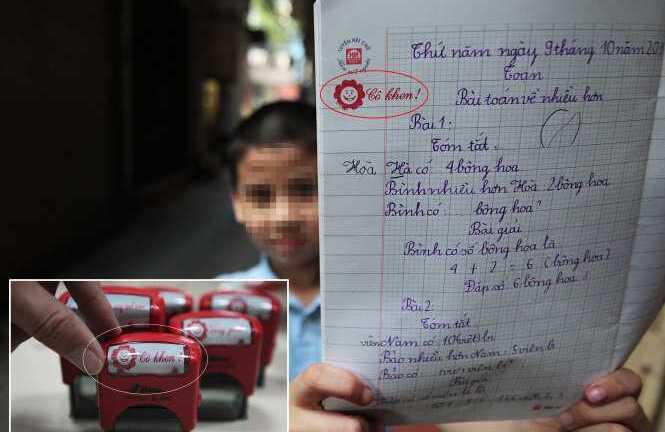 Thứ năm ngày 9 tháng 10 năm 201
Toán
Cô khen!
Bài toán về nhiều hơn
Bài 1:
Tóm tắt.
Hoà, Hà có 4 bông hoa
Bình nhiều hơn Hoà 2 bông hoa
Bình có ..... bông hoa?
Bài giải
Bình có số bông hoa là
4 + 2 = 6 (bông hoa)
Đáp số 6 bông hoa.
Bài 2.
Tóm tắt
viên Nam có 10 bi
Bảo nhiều hơn Nam 5 viên bi
Bảo có viên bi?
Bài giải
Cô khen!